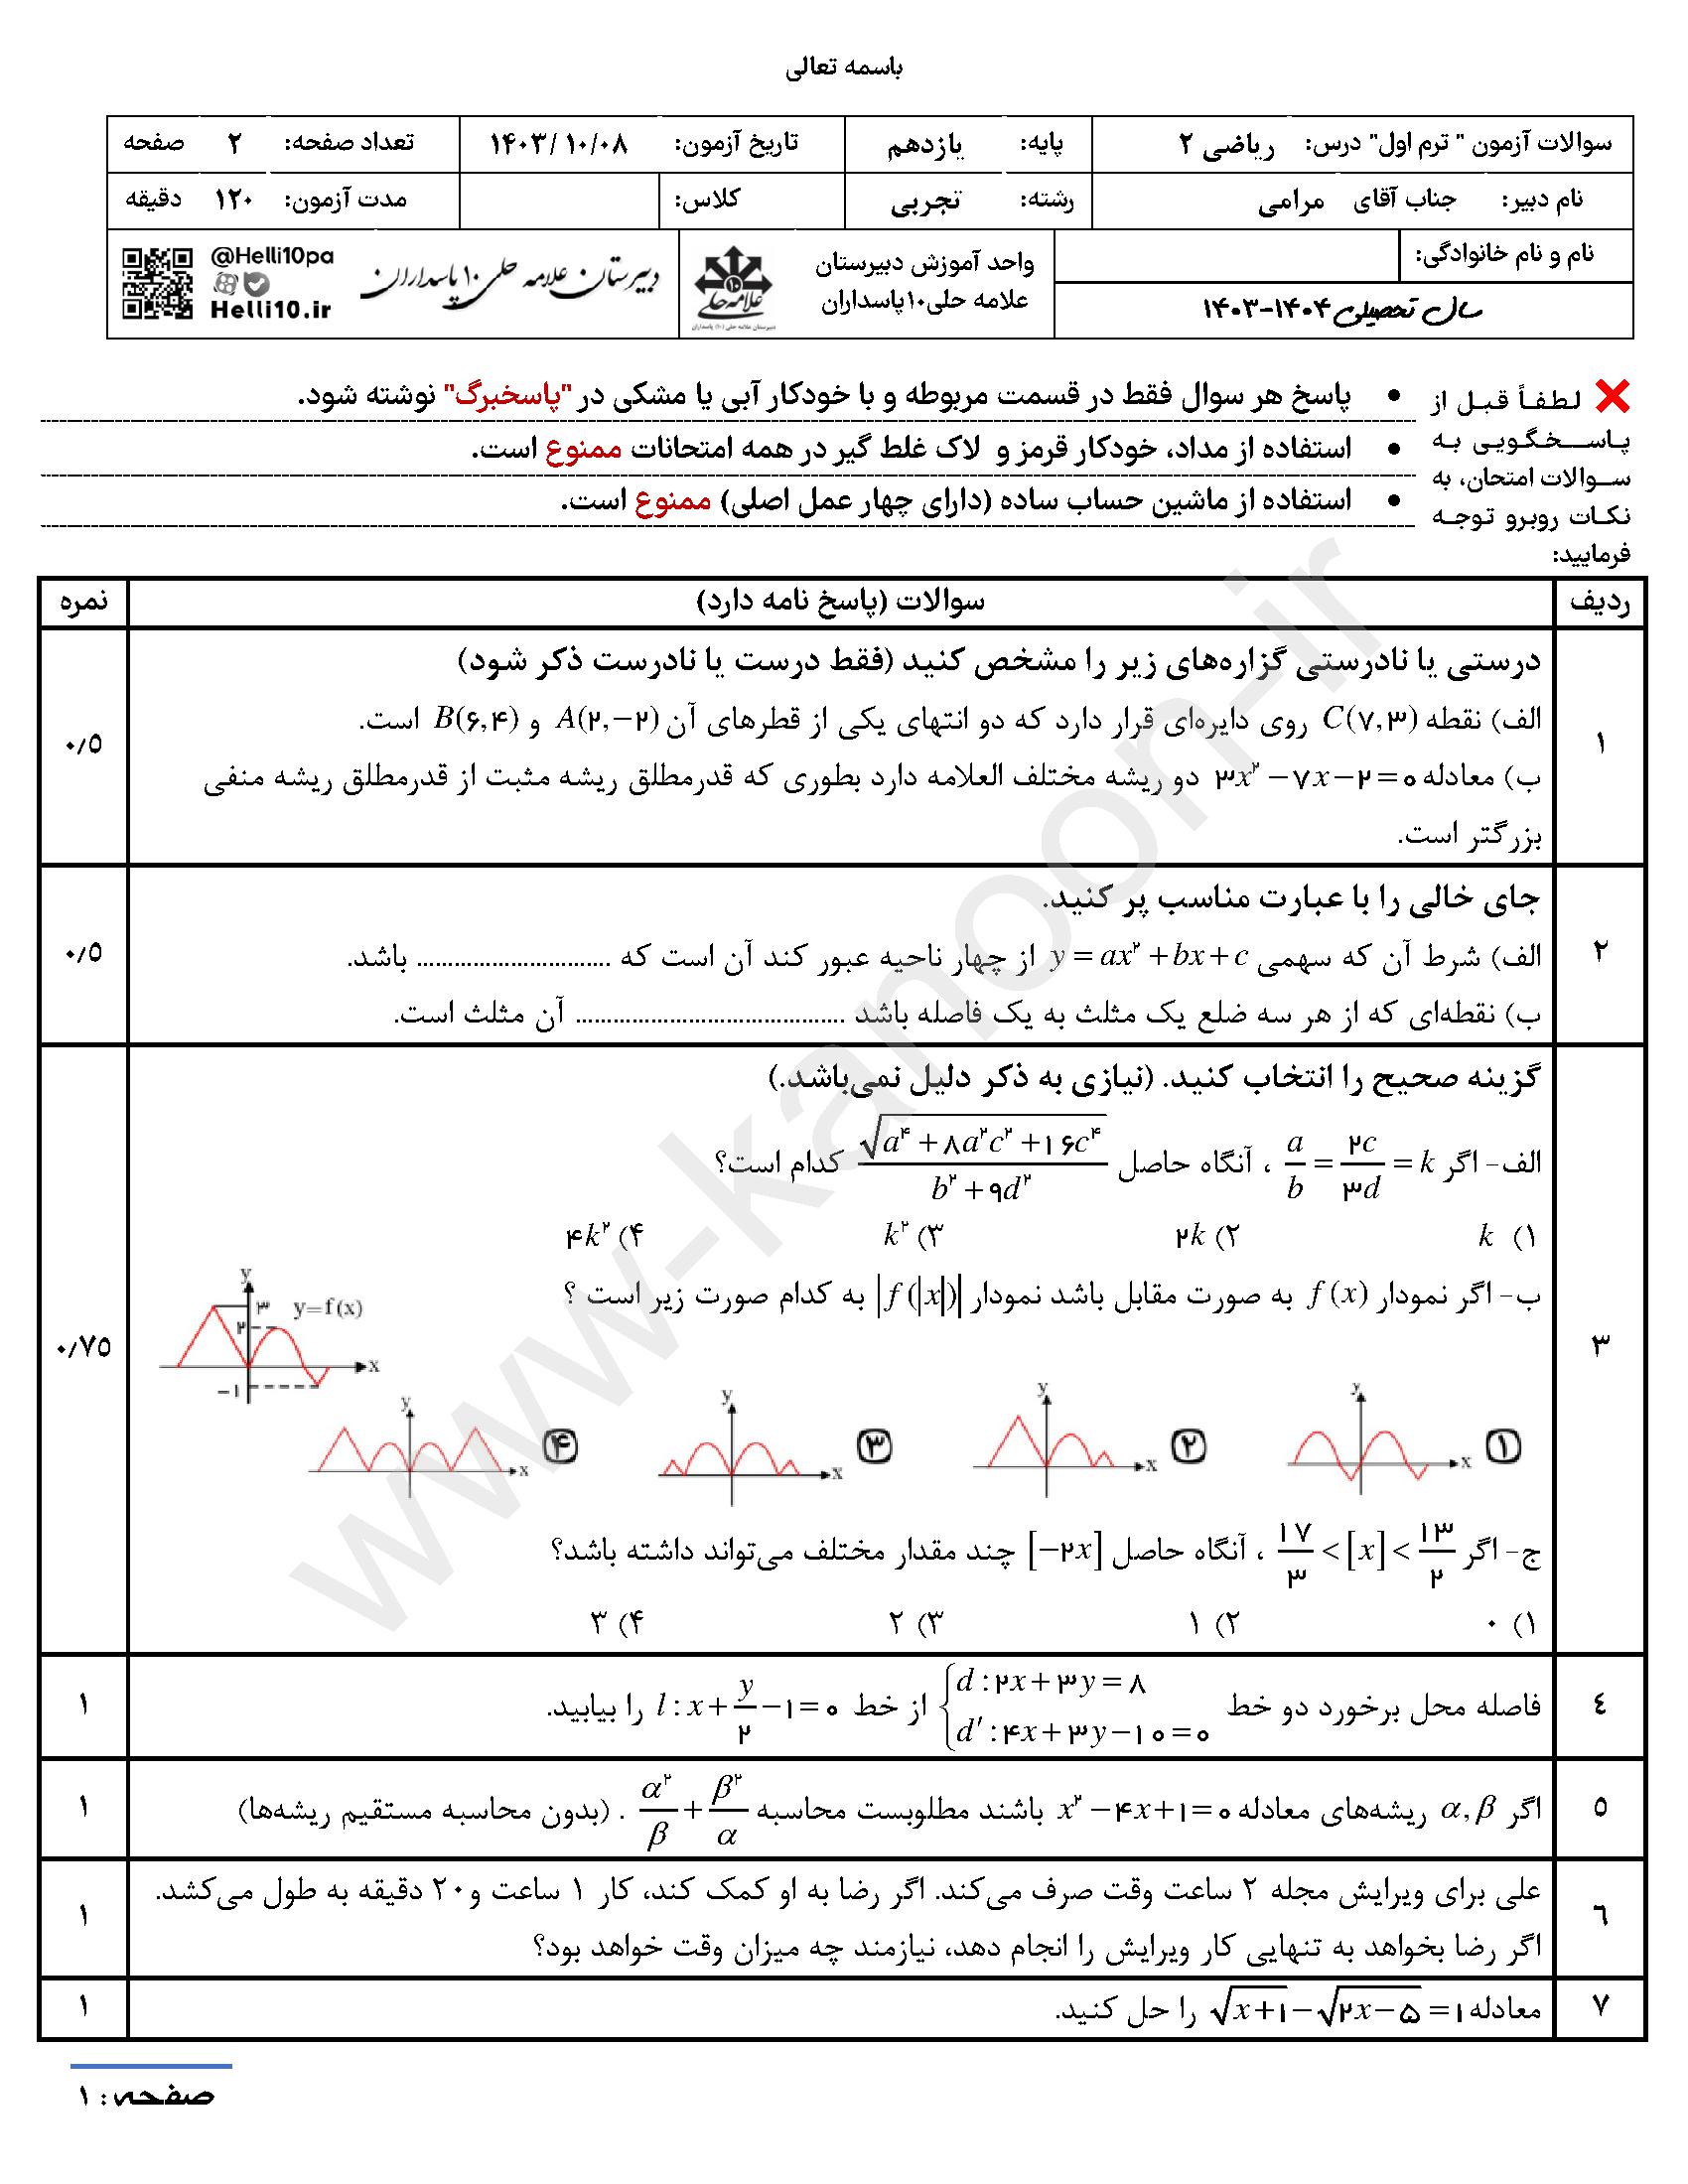 باسمه تعالی
سوالات آزمون " ترم اول" درس: ریاضی ۲ پایه: یازدهم تاریخ آزمون: ۱۴۰۳/۱۰/۰۸ تعداد صفحه: ۲ صفحه
نام دبیر: جناب آقای مرامی رشته: تجربی کلاس: مدت آزمون: ۱۲۰ دقیقه
نام و نام خانوادگی:
سال تحصیلی ۱۴۰۴-۱۴۰۳
واحد آموزش دبیرستان
علامه حلی۱۰پاسداران
علامه حلی
دبیرستان علامه حلی (۱۰) پاسداران
دبیرستان علامه حلی ۱۰ پاسداران
@Helli10pa
Helli10.ir
لطفاً قبل از
پاسخگویی به
سوالات امتحان، به
نکات روبرو توجه
فرمایید:
• پاسخ هر سوال فقط در قسمت مربوطه و با خودکار آبی یا مشکی در "پاسخبرگ" نوشته شود.
• استفاده از مداد، خودکار قرمز و لاک غلط گیر در همه امتحانات ممنوع است.
• استفاده از ماشین حساب ساده (دارای چهار عمل اصلی) ممنوع است.
ردیف سوالات (پاسخ نامه دارد) نمره
۱ درستی یا نادرستی گزاره‌های زیر را مشخص کنید (فقط درست یا نادرست ذکر شود) ۰/۵
الف) نقطه C(۷,۳) روی دایره‌ای قرار دارد که دو انتهای یکی از قطرهای آن A(۲,−۲) و B(۶,۴) است.
ب) معادله ۳x² − ۷x − ۲ = ۰ دو ریشه مختلف العلامه دارد بطوری که قدرمطلق ریشه مثبت از قدرمطلق ریشه منفی
بزرگتر است.
۲ جای خالی را با عبارت مناسب پر کنید. ۰/۵
الف) شرط آن که سهمی y = ax² + bx + c از چهار ناحیه عبور کند آن است که .............................. باشد.
ب) نقطه‌ای که از هر سه ضلع یک مثلث به یک فاصله باشد .......................................... آن مثلث است.
۳ گزینه صحیح را انتخاب کنید. (نیازی به ذکر دلیل نمی‌باشد.) ۰/۷۵
الف- اگر a/b = ۲c/۳d = k ، آنگاه حاصل √(a⁴ + ۸a²c² + ۱۶c⁴) / (b² + ۹d²) کدام است؟
۱) k ۲) ۲k ۳) k² ۴) ۴k²
ب- اگر نمودار f(x) به صورت مقابل باشد نمودار |f(|x|)| به کدام صورت زیر است ؟
y ۳ y=f(x) ۲ x −۱
۱ y x ۲ y x ۳ y x ۴ y x
ج- اگر ۱۷/۳ < [x] < ۱۳/۲ ، آنگاه حاصل [−۲x] چند مقدار مختلف می‌تواند داشته باشد؟
۱) ۰ ۲) ۱ ۳) ۲ ۴) ۳
۴ فاصله محل برخورد دو خط { d : ۲x + ۳y = ۸ , d′ : ۴x + ۳y − ۱۰ = ۰ از خط l : x + y/۲ − ۱ = ۰ را بیابید. ۱
۵ اگر α, β ریشه‌های معادله x² − ۴x + ۱ = ۰ باشند مطلوبست محاسبه α²/β + β²/α . (بدون محاسبه مستقیم ریشه‌ها) ۱
۶ علی برای ویرایش مجله ۲ ساعت وقت صرف می‌کند. اگر رضا به او کمک کند، کار ۱ ساعت و۲۰ دقیقه به طول می‌کشد. ۱
اگر رضا بخواهد به تنهایی کار ویرایش را انجام دهد، نیازمند چه میزان وقت خواهد بود؟
۷ معادله √(x+۱) − √(۲x−۵) = ۱ را حل کنید. ۱
صفحه: ۱
www-kanoon-ir